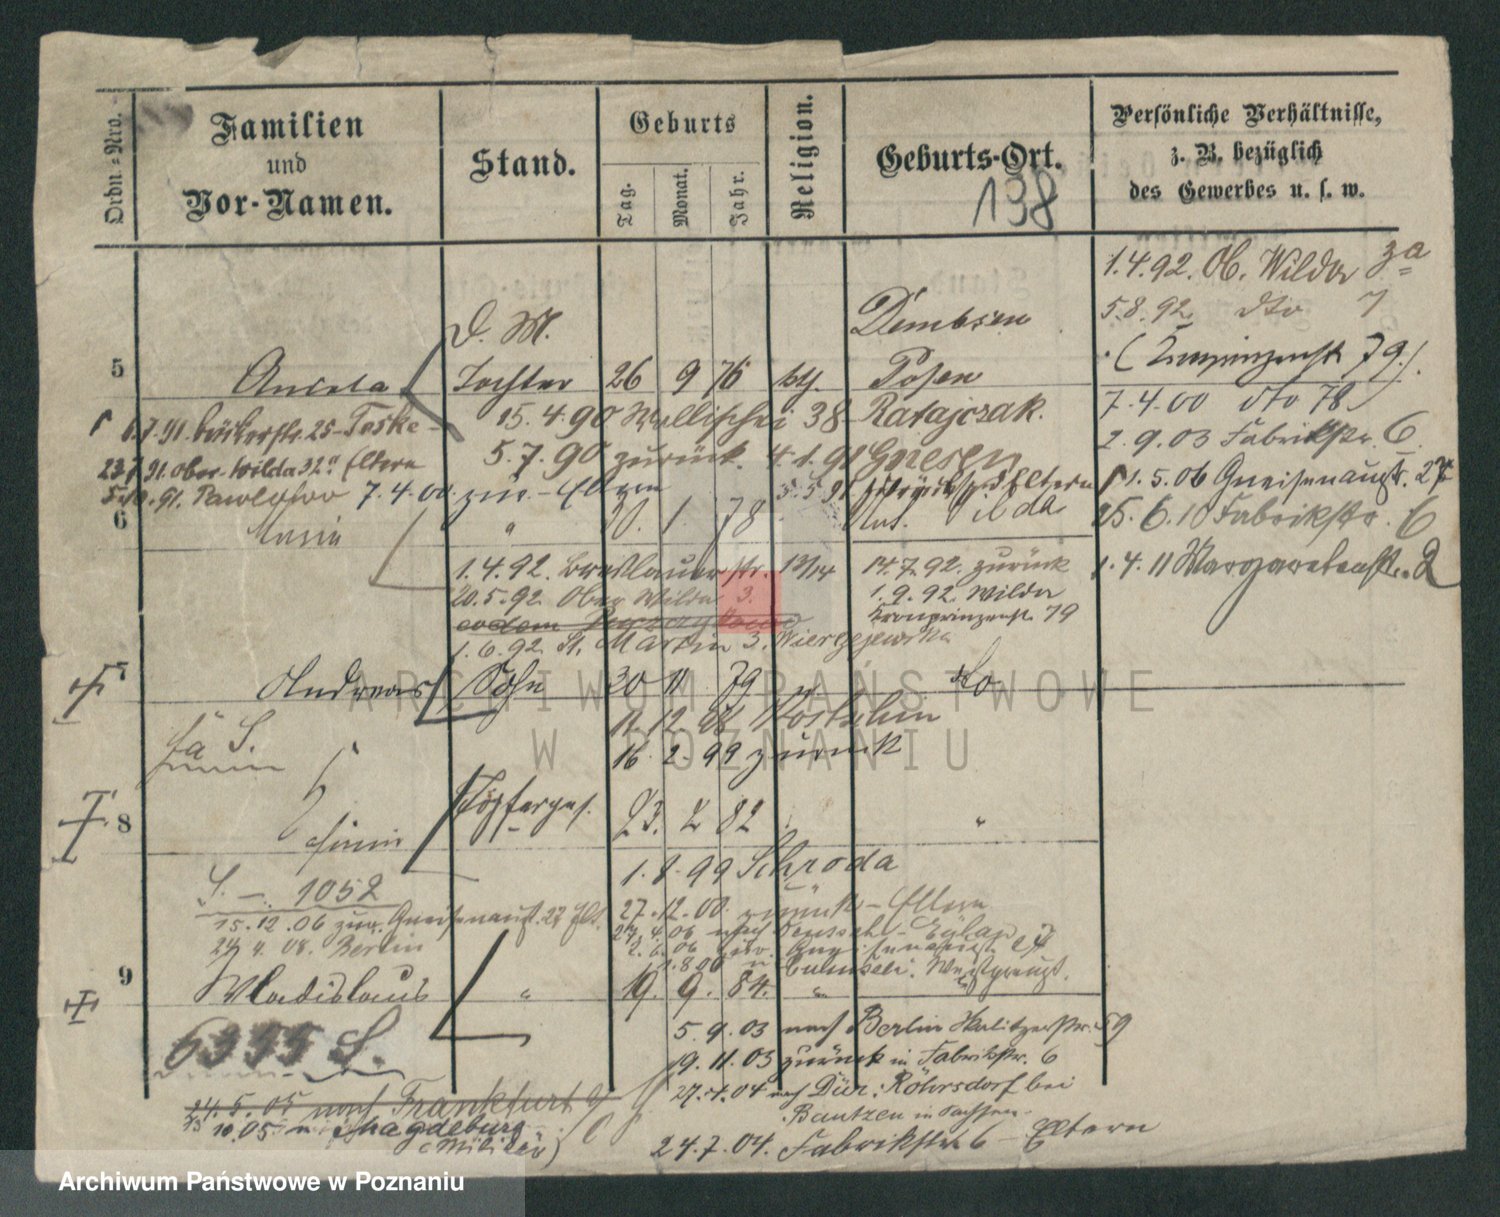 Ordn.-Nro.
Familien
und
Vor-Namen.
Stand.
Geburts
Tag.
Monat.
Jahr.
Religion.
Geburts-Ort.
138
Persönliche Verhältnisse,
z. B. bezüglich
des Gewerbes u. s. w.
1.4.92. Ob. Wilda 3a
D. M. Dembsen
5.8.92 dto 7
5 Tochter 26 9 76 kth. Posen
79.)
15.4.90 Wallischei 38 Ratajczak.
7.4.00 dto 78
6.7.91 25 Teske
5.7.90 zurück. 4.1.91 Gnesen
2.9.03 Fabrikstr. 6
23.7.91. Ober Wilda 32a Eltern
5.5.91 Eltern
1.5.06 Gneisenaustr. 27
91. Pawlowo 7.4.00. zur. - Eltern
6 Maria " 1 78 Unt. Wilda
25.6.10 Fabrikstr. 6
1.4.92. Breslauerstr. 13/14 14.7.92. zurück
1.4.11 Margaretenstr. 2
20.5.92. Ober Wilda 3. 1.9.92. Wilda
eodem
Kronprinzenstr. 79
1.6.92. St. Martin 3. Wierzejewska
7 Andreas Sohn 30 11 79 do
11.12.98 Kostschin
16.2.99 zurück
8 Töpferges. 23. 82 "
1.8.99 Schroda
S. - 1052
27.12.00 zurück - Eltern
15.12.06 zur. Gneisenaustr. 27
nach Deutsch-Eylau
24.4.08. Berlin
2.6.06 zur. Gneisenaustr. 27
1.8.06 n Culmsee. Westpreuß.
9 Wladislaus " 19. 9. 84. "
5.9.03 nach Berlin 59
6355 S.
19.11.03 zurück in Fabrikstr. 6
27.4.04 nach Röhrsdorf bei
24.5.05 nach Frankfurt
Bautzen in Sachsen.
10.05 n Magdeburg
(Militär)
24.7.04. Fabrikstr. 6 - Eltern
ARCHIWUM PAŃSTWOWE
W POZNANIU
Archiwum Państwowe w Poznaniu